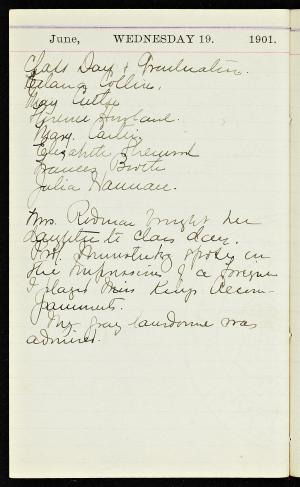 June, WEDNESDAY 19. 1901.
Class Day & Graduation.
Collins.
May
Florence
Mary
Elizabeth Sherwood
Frances Booth
Julia Hannan.
Mrs. Redman brought her
daughter to class day.
spoke on
the impressions of a foreigner
I played Miss King's accom-
paniments.
My gray lansdowne was
admired.